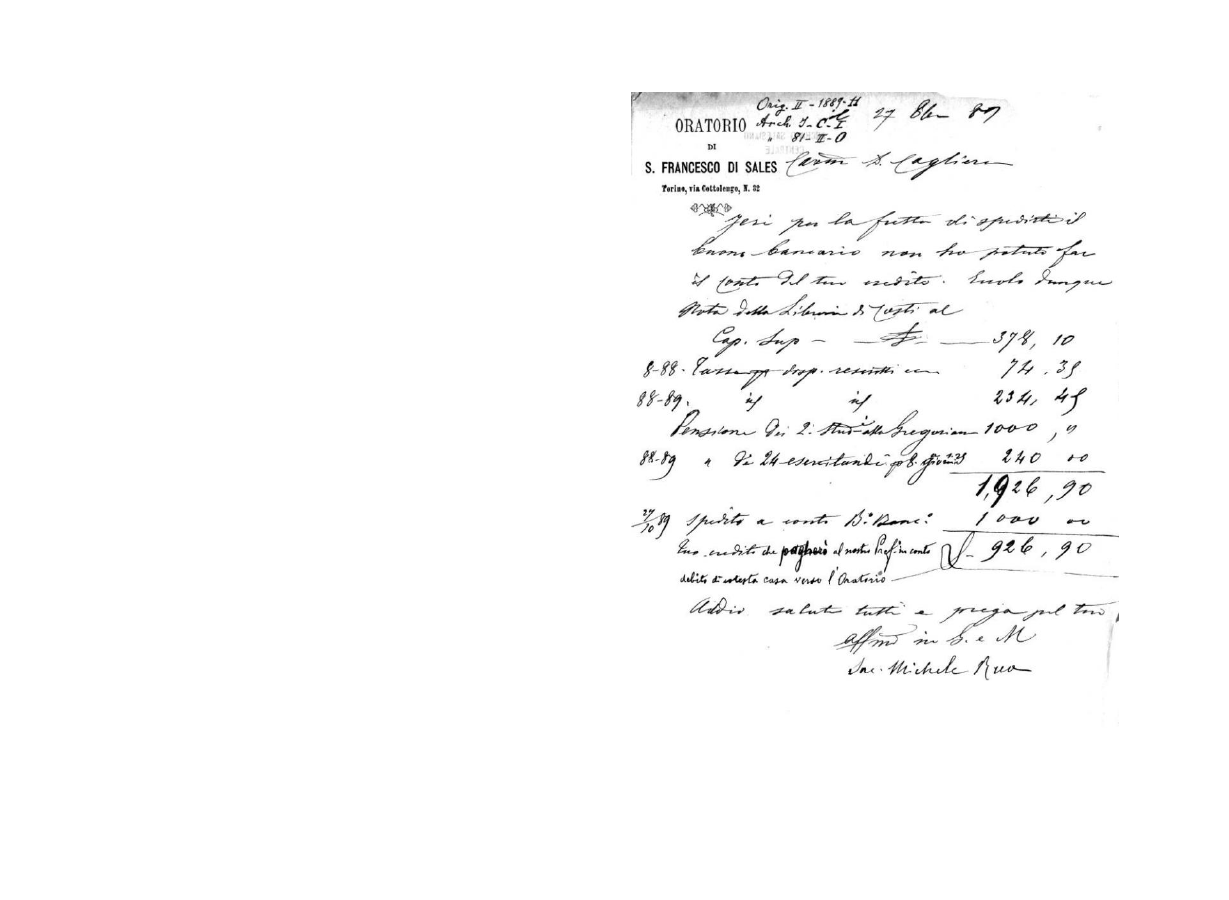 Orig. II - 1889-II
Arch. I-C-I
" 81-II-O
27 8bre 89
ORATORIO
DI
S. FRANCESCO DI SALES
Torino, via Cottolengo, N. 32
Carmo D. Cagliero
Jeri per la fretta di spedirti il
buono bancario non ho potuto far
il conto del tuo credito. Eccolo dunque
Nota della Libreria di Costì al
Cap. Sup - 378, 10
8-88. disp. 74, 35
88-89. id id 234, 45
Pensione dei 2. Stud.i alla Gregoriana 1000 , "
88-89 " di 24 esercitandi p 8. giorni 240 00
1,926,90
27/10 89 spedito a conto B.o Banc.o 1000 00
Tuo credito che pagherò al nostro Pref. in conto 926,90
debito di cotesta casa verso l'Oratorio
Addio saluta tutti e prega pel tuo
affmo in G. e M
Sac. Michele Rua